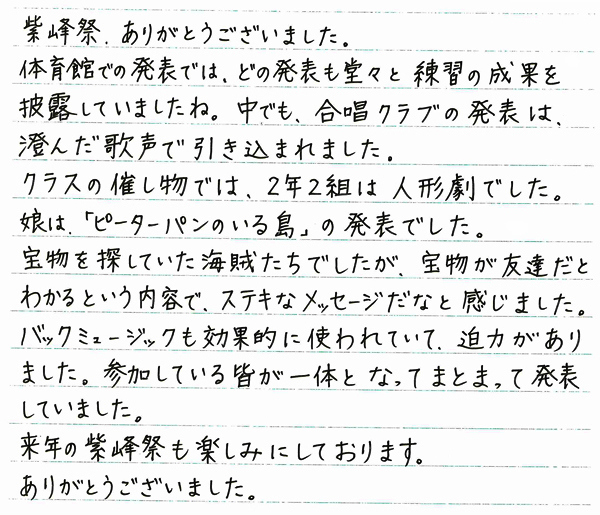 紫峰祭、ありがとうございました。
体育館での発表では、どの発表も堂々と練習の成果を
披露していましたね。中でも、合唱クラブの発表は、
澄んだ歌声で引き込まれました。
クラスの催し物では、2年2組は人形劇でした。
娘は、「ピーターパンのいる島」の発表でした。
宝物を探していた海賊たちでしたが、宝物が友達だと
わかるという内容で、ステキなメッセージだなと感じました。
バックミュージックも効果的に使われていて、迫力があり
ました。参加している皆が一体となってまとまって発表
していました。
来年の紫峰祭も楽しみにしております。
ありがとうございました。